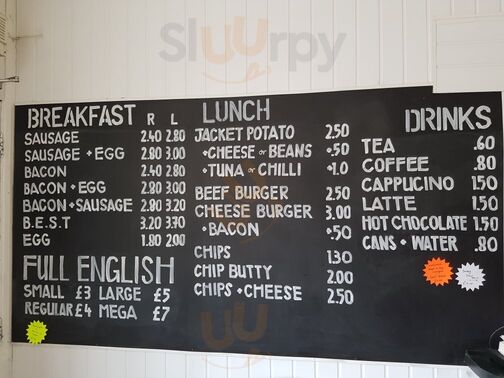 Sluurpy
BREAKFAST R L
SAUSAGE 2.40 2.80
SAUSAGE + EGG 2.80 3.00
BACON 2.40 2.80
BACON + EGG 2.80 3.00
BACON + SAUSAGE 2.80 3.20
B.E.S.T 3.20 3.70
EGG 1.80 2.00
FULL ENGLISH
SMALL £3 LARGE £5
REGULAR £4 MEGA £7
LUNCH
JACKET POTATO 2.50
+ CHEESE or BEANS +.50
+ TUNA or CHILLI +1.0
BEEF BURGER 2.50
CHEESE BURGER 3.00
+ BACON +.50
CHIPS 1.30
CHIP BUTTY 2.00
CHIPS + CHEESE 2.50
DRINKS
TEA .60
COFFEE .80
CAPPUCINO 1.50
LATTE 1.50
HOT CHOCOLATE 1.50
CANS + WATER .80